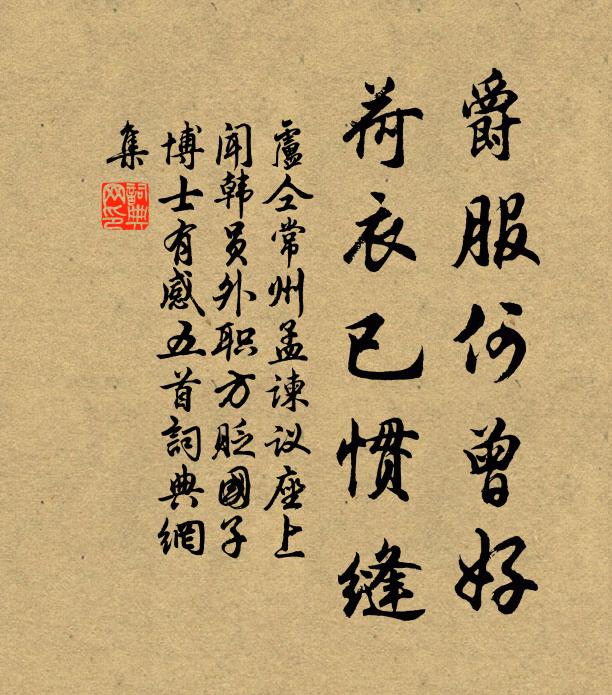 爵服何曾好
荷衣已惯缝
卢仝常州孟谏议座上
闻韩员外职方贬國子
博士有感五首詞典網
集
詞典网印